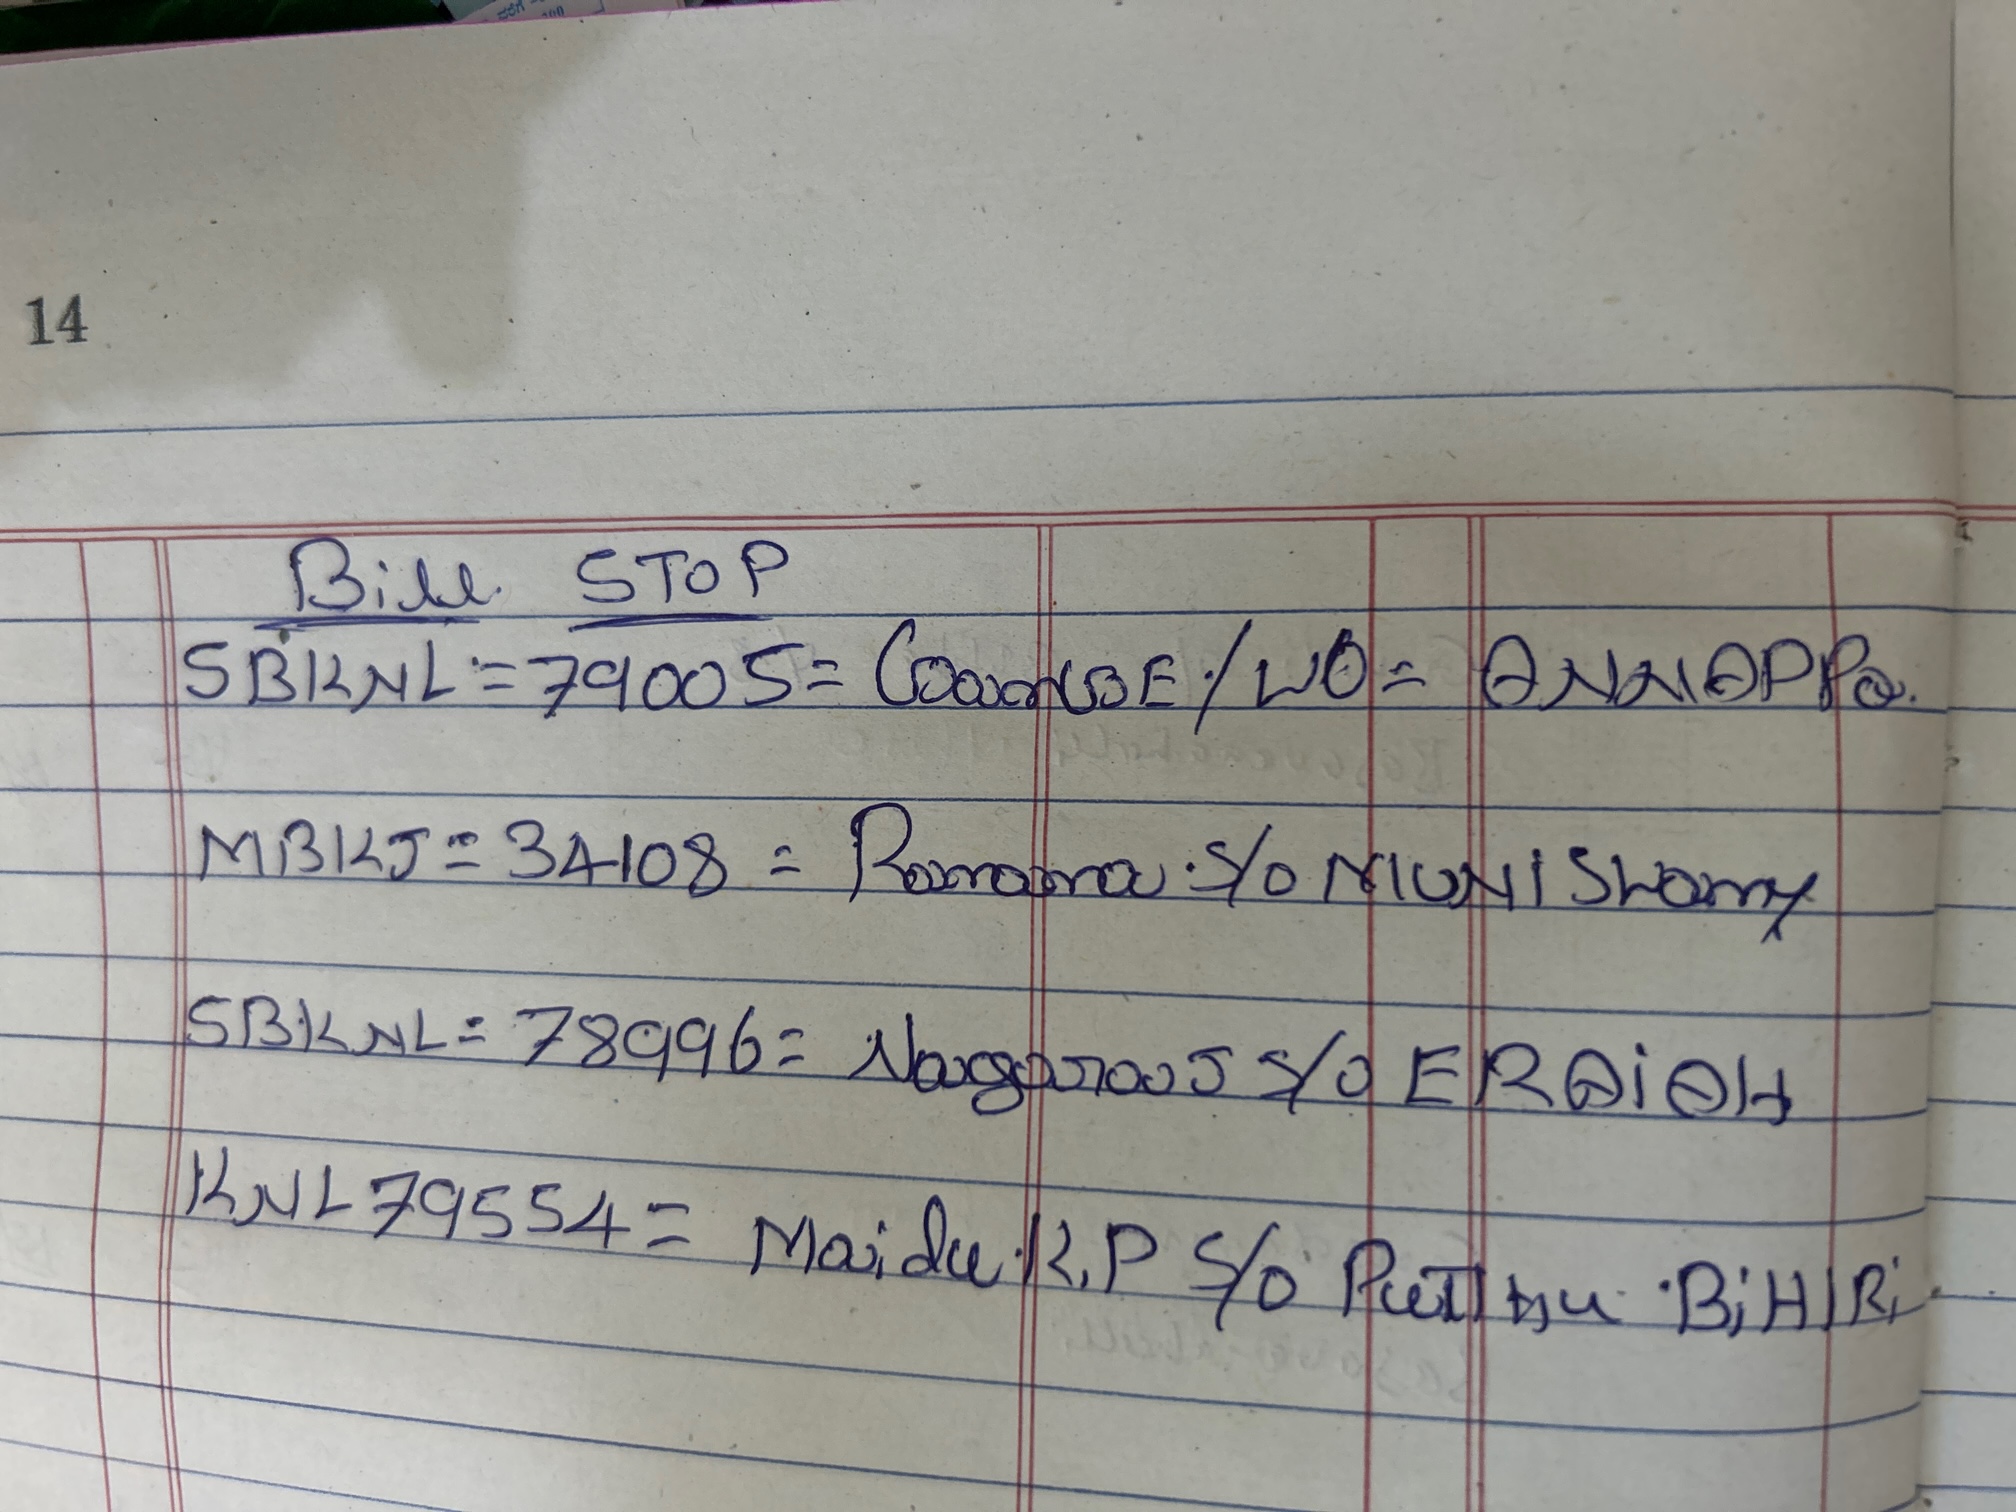 14
Bill STOP
SBKNL = 79005 = /WO = ANNAPPa.
MBKJ = 34108 = Ramama S/o MUNiSwamy
SBKNL = 78996 = NagaraJ S/O ERAiAH
KNL 79554 = Maidu K.P S/o BiHIRi